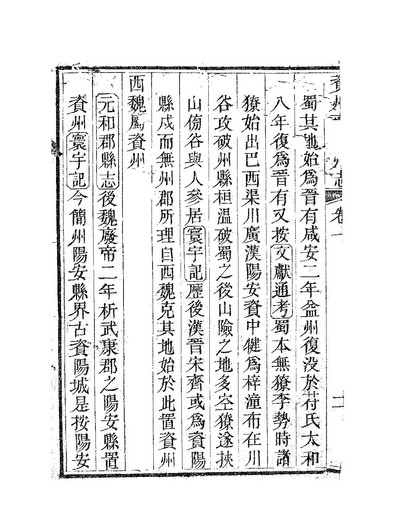 蜀其地始爲晉有咸安二年益州復没於苻氏太和
八年復爲晉有又按文獻通考蜀本無獠李勢時諸
獠始出巴西渠川廣漢陽安資中犍爲梓潼布在川
谷攻破州縣桓温破蜀之後山險之地多空獠遂挾
山傍谷與人參居寰宇記歷後漢晉宋齊或爲資陽
縣戍而無州郡所理自西魏克其地始於此置資州
西魏屬資州
元和郡縣志後魏廢帝二年析武康郡之陽安縣置
資州寰宇記今簡州陽安縣界古資陽城是按陽安